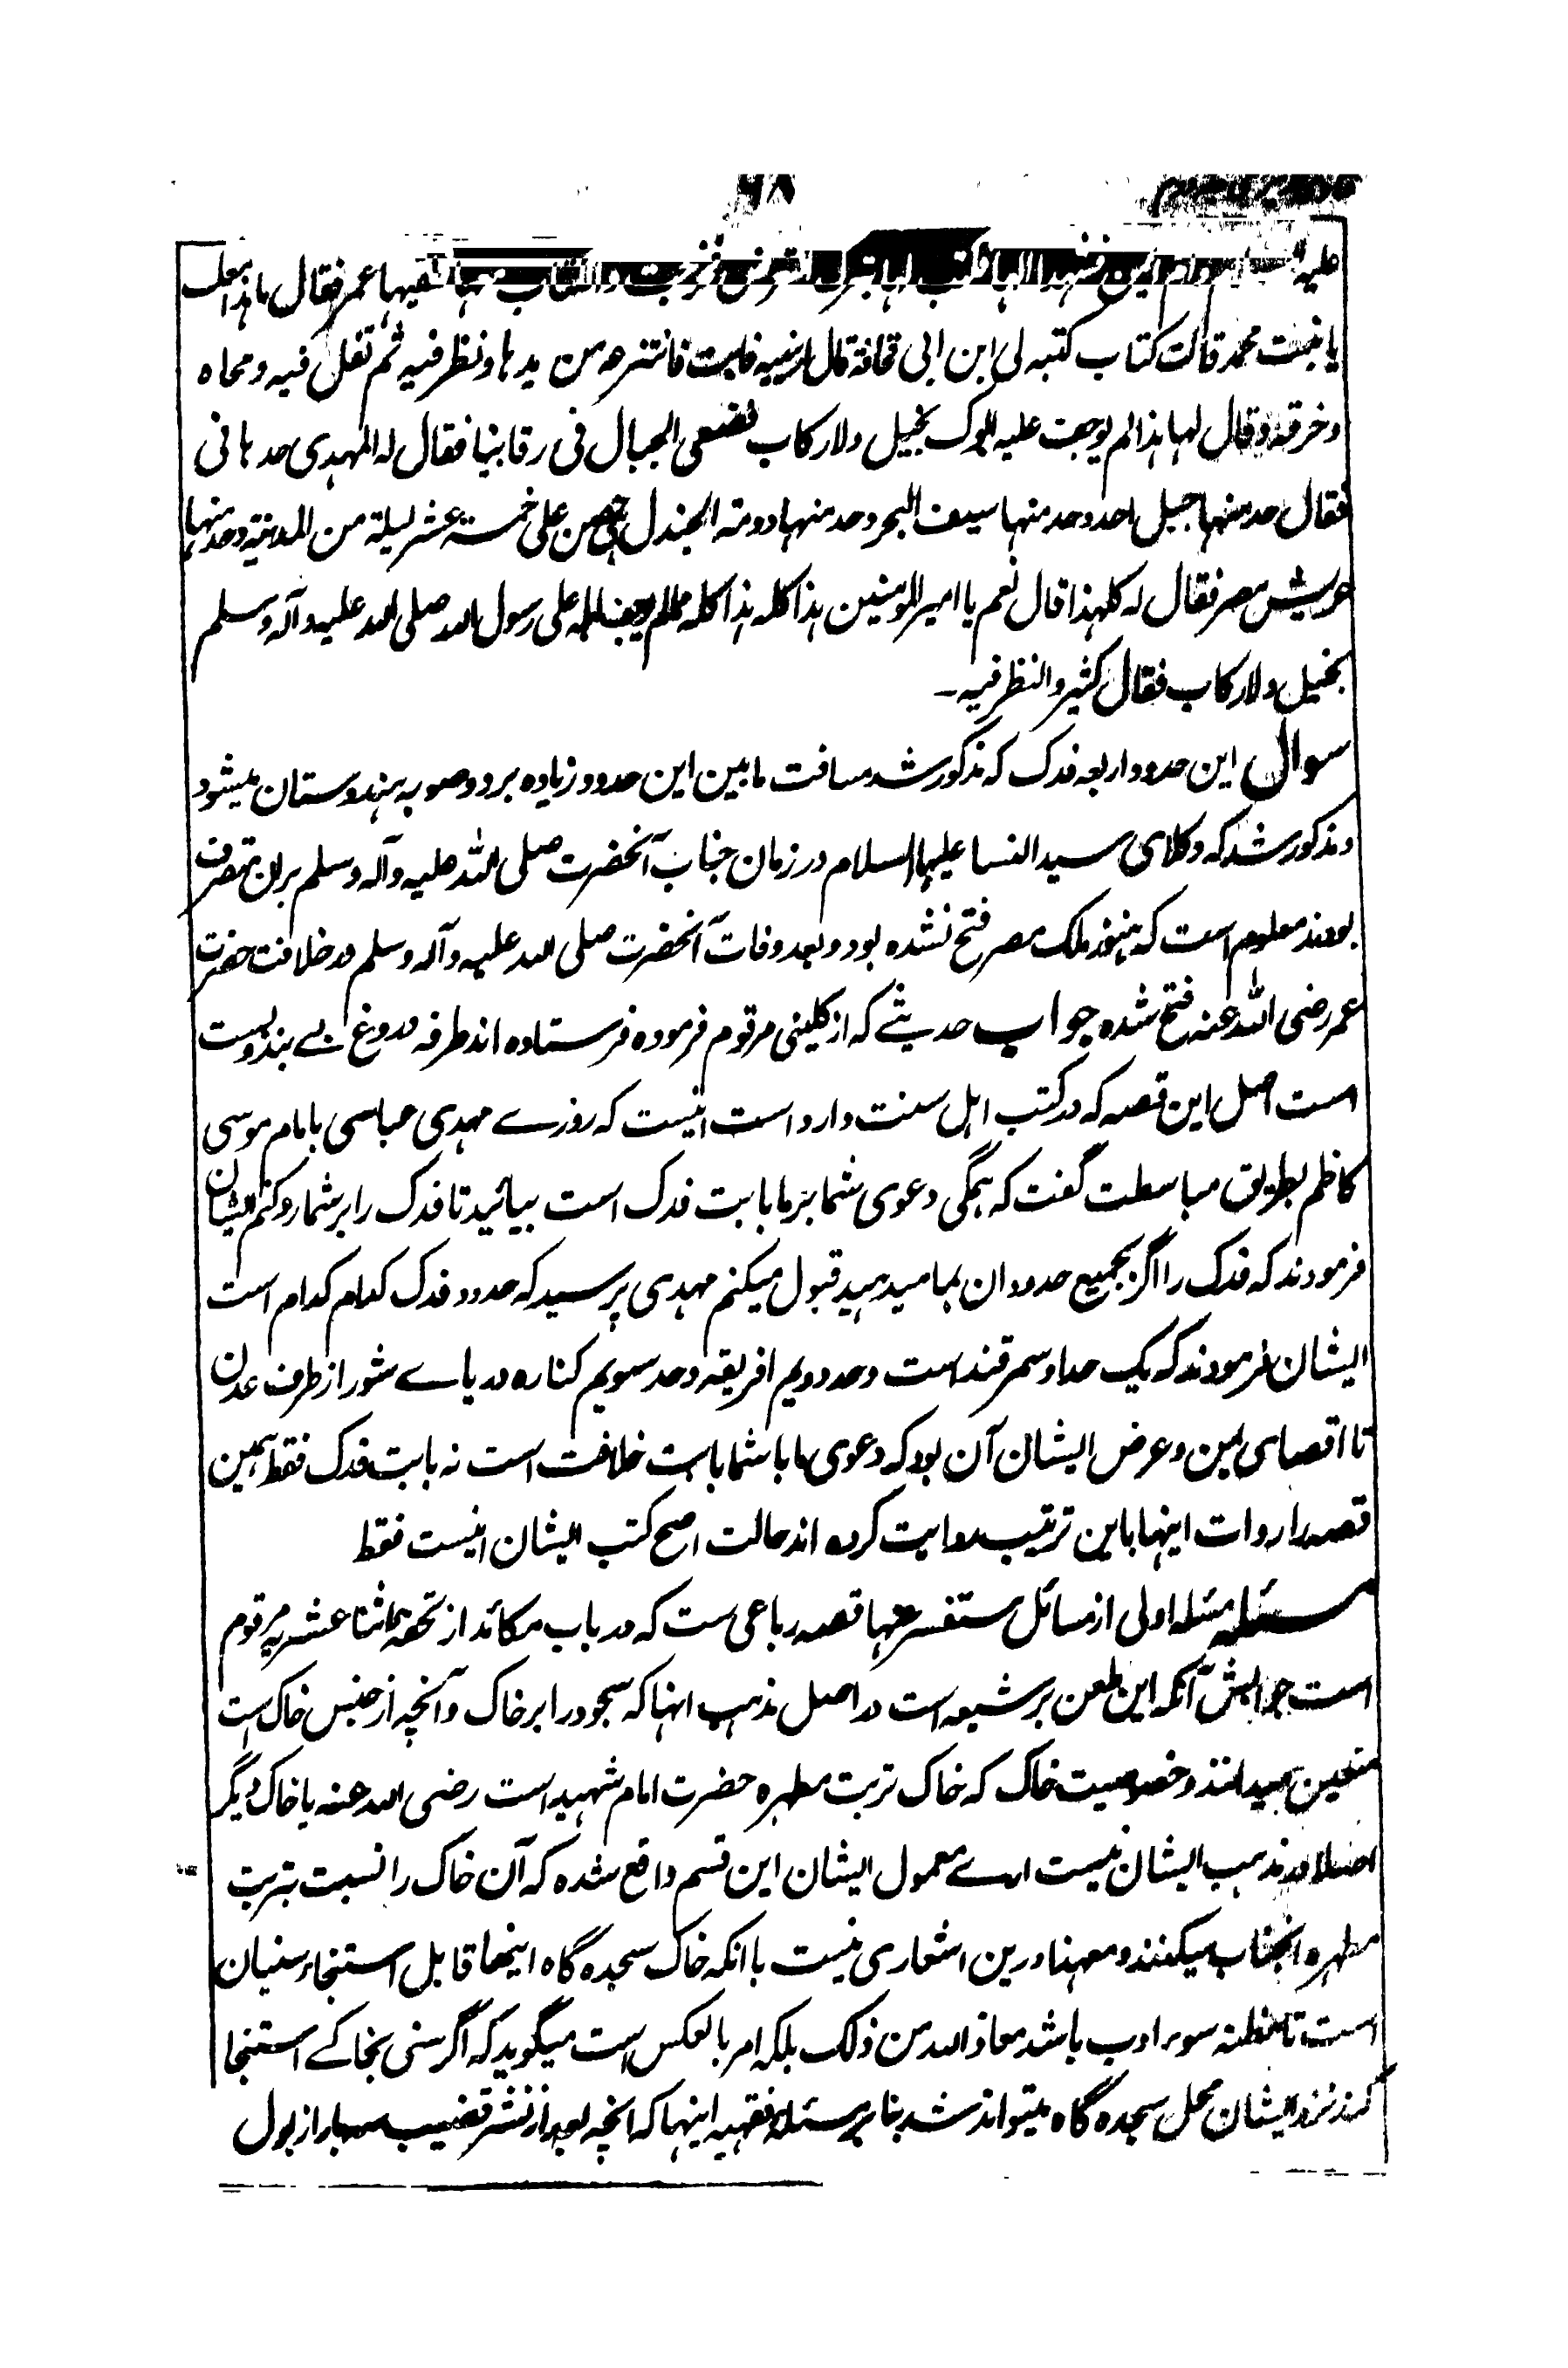 ۶۸
علیه السلام وام ایمن فشهدا لها فکتب لها بترک التعرض فخرجت والکتاب معها فلقیها عمر فقال ما هذا معک
یا بنت محمد قالت کتاب کتبه لی ابن ابی قحافة قال ارینیه فابت فانتزعه من یدها ونظر فیه ثم تفل فیه ومحاه
وخرقه وقال لها هذا لم یوجف علیه ابوک بخیل ولا رکاب فضعی الجبال فی رقابنا فقال له المهدی حدها لی
فقال حد منها جبل احد وحد منها سیف البحر وحد منها دومة الجندل حصن علی خمسة عشر لیلة من المدینة وحد منها
عریش مصر فقال له کلهذا قال نعم یا امیر المومنین هذا کله هذا کله مما لم یوجف اهله علی رسول الله صلی الله علیه وآله وسلم
بخیل ولا رکاب فقال کثیر وانظر فیه۔
سوال این حدود اربعه فدک که مذکور شد مسافت مابین این حدود زیاده بر دو صوبه هندوستان میشود
ومذکور شد که وکلای سید النسا علیها السلام در زمان جناب آنحضرت صلی الله علیه وآله وسلم بران متصرف
بودند معلوم است که هنوز ملک مصر فتح نشده بود وبعد وفات آنحضرت صلی الله علیه وآله وسلم در خلافت حضرت
عمر رضی الله عنه فتح شده جواب حدیثے که از کلینی مرقوم فرموده فرستاده اند طرفه دروغ بے بندوبست
است اصل این قصه که در کتب اهل سنت وارد است اینست که روزے مهدی عباسی با امام موسی
کاظم بطریق مباسطت گفت که همگی دعوی شما بر ما بابت فدک است بیائید تا فدک را بر شما رد کنم ایشان
فرمودند که فدک را اگر بجمیع حدود ان بما میدهید قبول میکنم مهدی پرسید که حدود فدک کدام کدام است
ایشان فرمودند که یک حد او سمرقند است وحد دویم افریقه وحد سویم کناره دریاے شور از طرف عدن
تا اقصای یمن وغرض ایشان آن بود که دعوی ما با شما بابت خلافت است نه بابت فدک فقط همین
قصه را روات اینها باین ترتیب روایت کرده اند حالت اصح کتب ایشان اینست فقط
مسئله مسئله اولی از مسائل مستفسر عنها قصه رباعی ست که در باب مکائد از تحفه اثنا عشریه مرقوم
است جوابش آنکه این طعن بر شیعه است در اصل مذهب انها که سجود را بر خاک وآنچه از جنس خاک است
متعین میدانند وخصوصیت خاک که خاک تربت مطهره حضرت امام شهید است رضی الله عنه یا خاک دیگر
اصلا در مذهب ایشان نیست ارے معمول ایشان این قسم واقع شده که آن خاک را نسبت بتربت
مطهره انجناب میکنند ومعهذا درین اشعاری نیست بانکه خاک سجده گاه اینها قابل استنجاء سنیان
است تا مظنه سوء ادب باشد معاذ الله من ذلک بلکه امر بالعکس است میگوید که اگر سنی بخاکے استنجا
کند نزد ایشان محل سجده گاه میتواند شد بنا بر مسئله فقهیه اینها که انچه بعد از نثر قضیب سه بار از بول